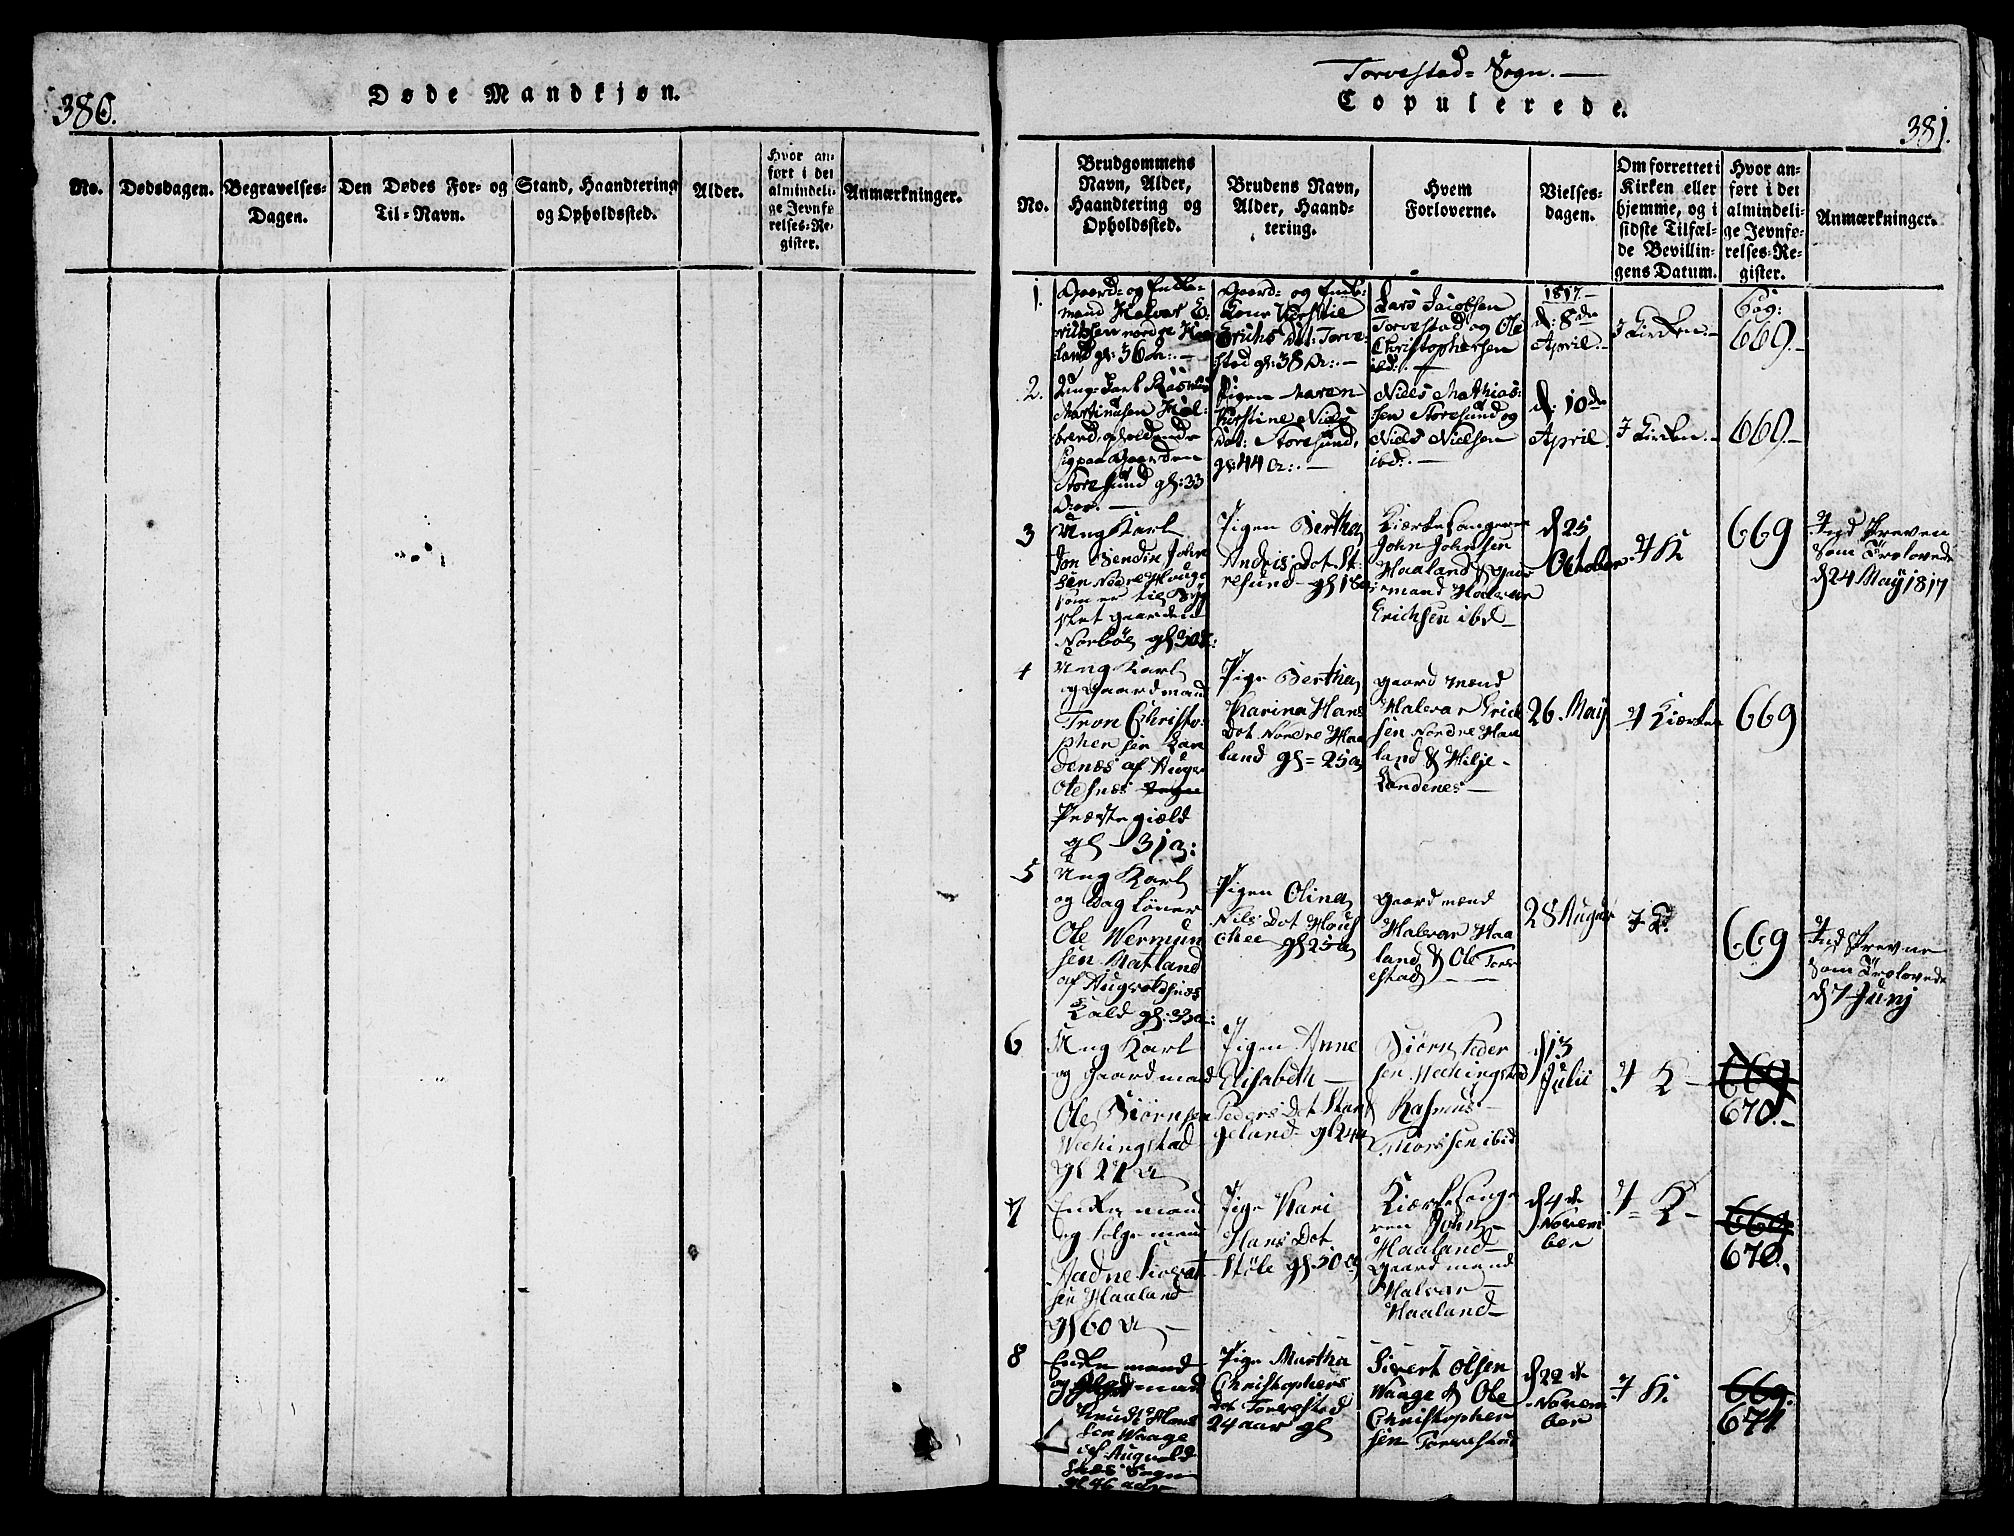 380.
Døde Mandkjøn.
No.
Dødsdagen.
Begravelses-
Dagen.
Den Dødes For- og
Til-Navn.
Stand, Haandtering
og Opholdssted.
Alder.
Hvor an-
ført i det
almindeli-
ge Jevnfø-
relses-Re-
gister.
Anmærkninger.
Torvestad-Sogn.
Copulerede.
381.
No.
Brudgommens
Navn, Alder,
Haandtering og
Opholdssted.
Brudens Navn,
Alder, Haand-
tering.
Hvem
Forloverne.
Vielses-
dagen.
Om forrettet i
Kirken eller
hjemme, og i
sidste Tilfæl-
de Bevillin-
gens Datum.
Hvor an-
ført i det
almindeli-
ge Jevnfø-
relses-Re-
gister.
Anmærkninger.
1.
Gaard- og Enke-
mand Halvar E-
richsen nordre Haa-
land gl: 36 Ar:
Gaard- og Enke-
Kone Kirstie
Erichs Dat: Torve-
stad gl: 38 Ar:
Lars Jacobsen
Torvestad og Ole
Christophersen
ibd:
1817.
d: 8de
April.
I Kirken.
Pag:
669.
2.
Ung-Karl Rasmus
Martinusen
Storesund gl: 33
Aar.
Pigen Maren
Kirstine Niels
Dat: Storesund,
gl: 44 Ar:
Niels Mathias-
sen Storesund og
Niels Nielsen
ibd:
d: 10de
April.
I Kirken.
669.
3
Ung Karl
Jon Bendix John
sen Nordre Houge
som er til Byg
slet gaarden
Norbøe gl 30 a:
Pigen Bertha
Andris Dot Sto
resund gl 18 a
Kierkesangeren
John Johnsen
Haaland & gaar
mand Halvar
Erichsen ibd
d 25
October
I K
669
Ind Skreven
som Trolovede
d 24 May 1817
4
Ung Karl
og Gaardmand
Tron Christo-
phersen Lan
denæs af Aug
Olesnæs Sogne
Præstegiæld
gl 31 a:
Pige Bertha
Karina Hans
Dot Nordre Haa
land gl = 25 a
gaard mænd
Halvar Erich
sen Nordre Haa
land & Hilje
Landenes
26 May
I Kierken
669
5
Ung Karl
og Dag Løner
Ole Wermun
sen Matland
af Augvoldsnæs
Kald gl: 33 a:
Pigen Olina
Nils Dot Hous
chee gl 25 a
gaard mænd
Halvar Haa
land & Ole Torv
estad
28 August
I K
669
Ind Skrevne
som Trolovede
d 7 Junj
6
Ung Karl
og Gaardmand
Ole Biørnsen
Wechingstad
gl 27 a
Pigen Anne
Elisabeth
Peders Dot Stan
geland gl 24 a
Biørn Peder
sen Wechingstad
& Rasmus
Thorssen ibid
d 13
Julii
I K
669
670.
7
Enke mand
og følgemand
Aadne Sivert
sen Haaland
gl 60 a
Pige Kari
Hans Dot
Støle gl 50 a
Kierkesange
ren John
Haaland
gaardmand
Halvar
Haaland
d 4de
Novem
ber
I K
669
670.
8
Enke mand
og Gaardmand
Knudt Hans
sen Waage
af Augvold
snes Sogn
Pige Martha
Christophers
Dot Torvestad
24 aar gl
Sivert Olsen
Waage & Ole
Christopher
sen Torvestad
d 22de
Novem
ber
I K
669.
671